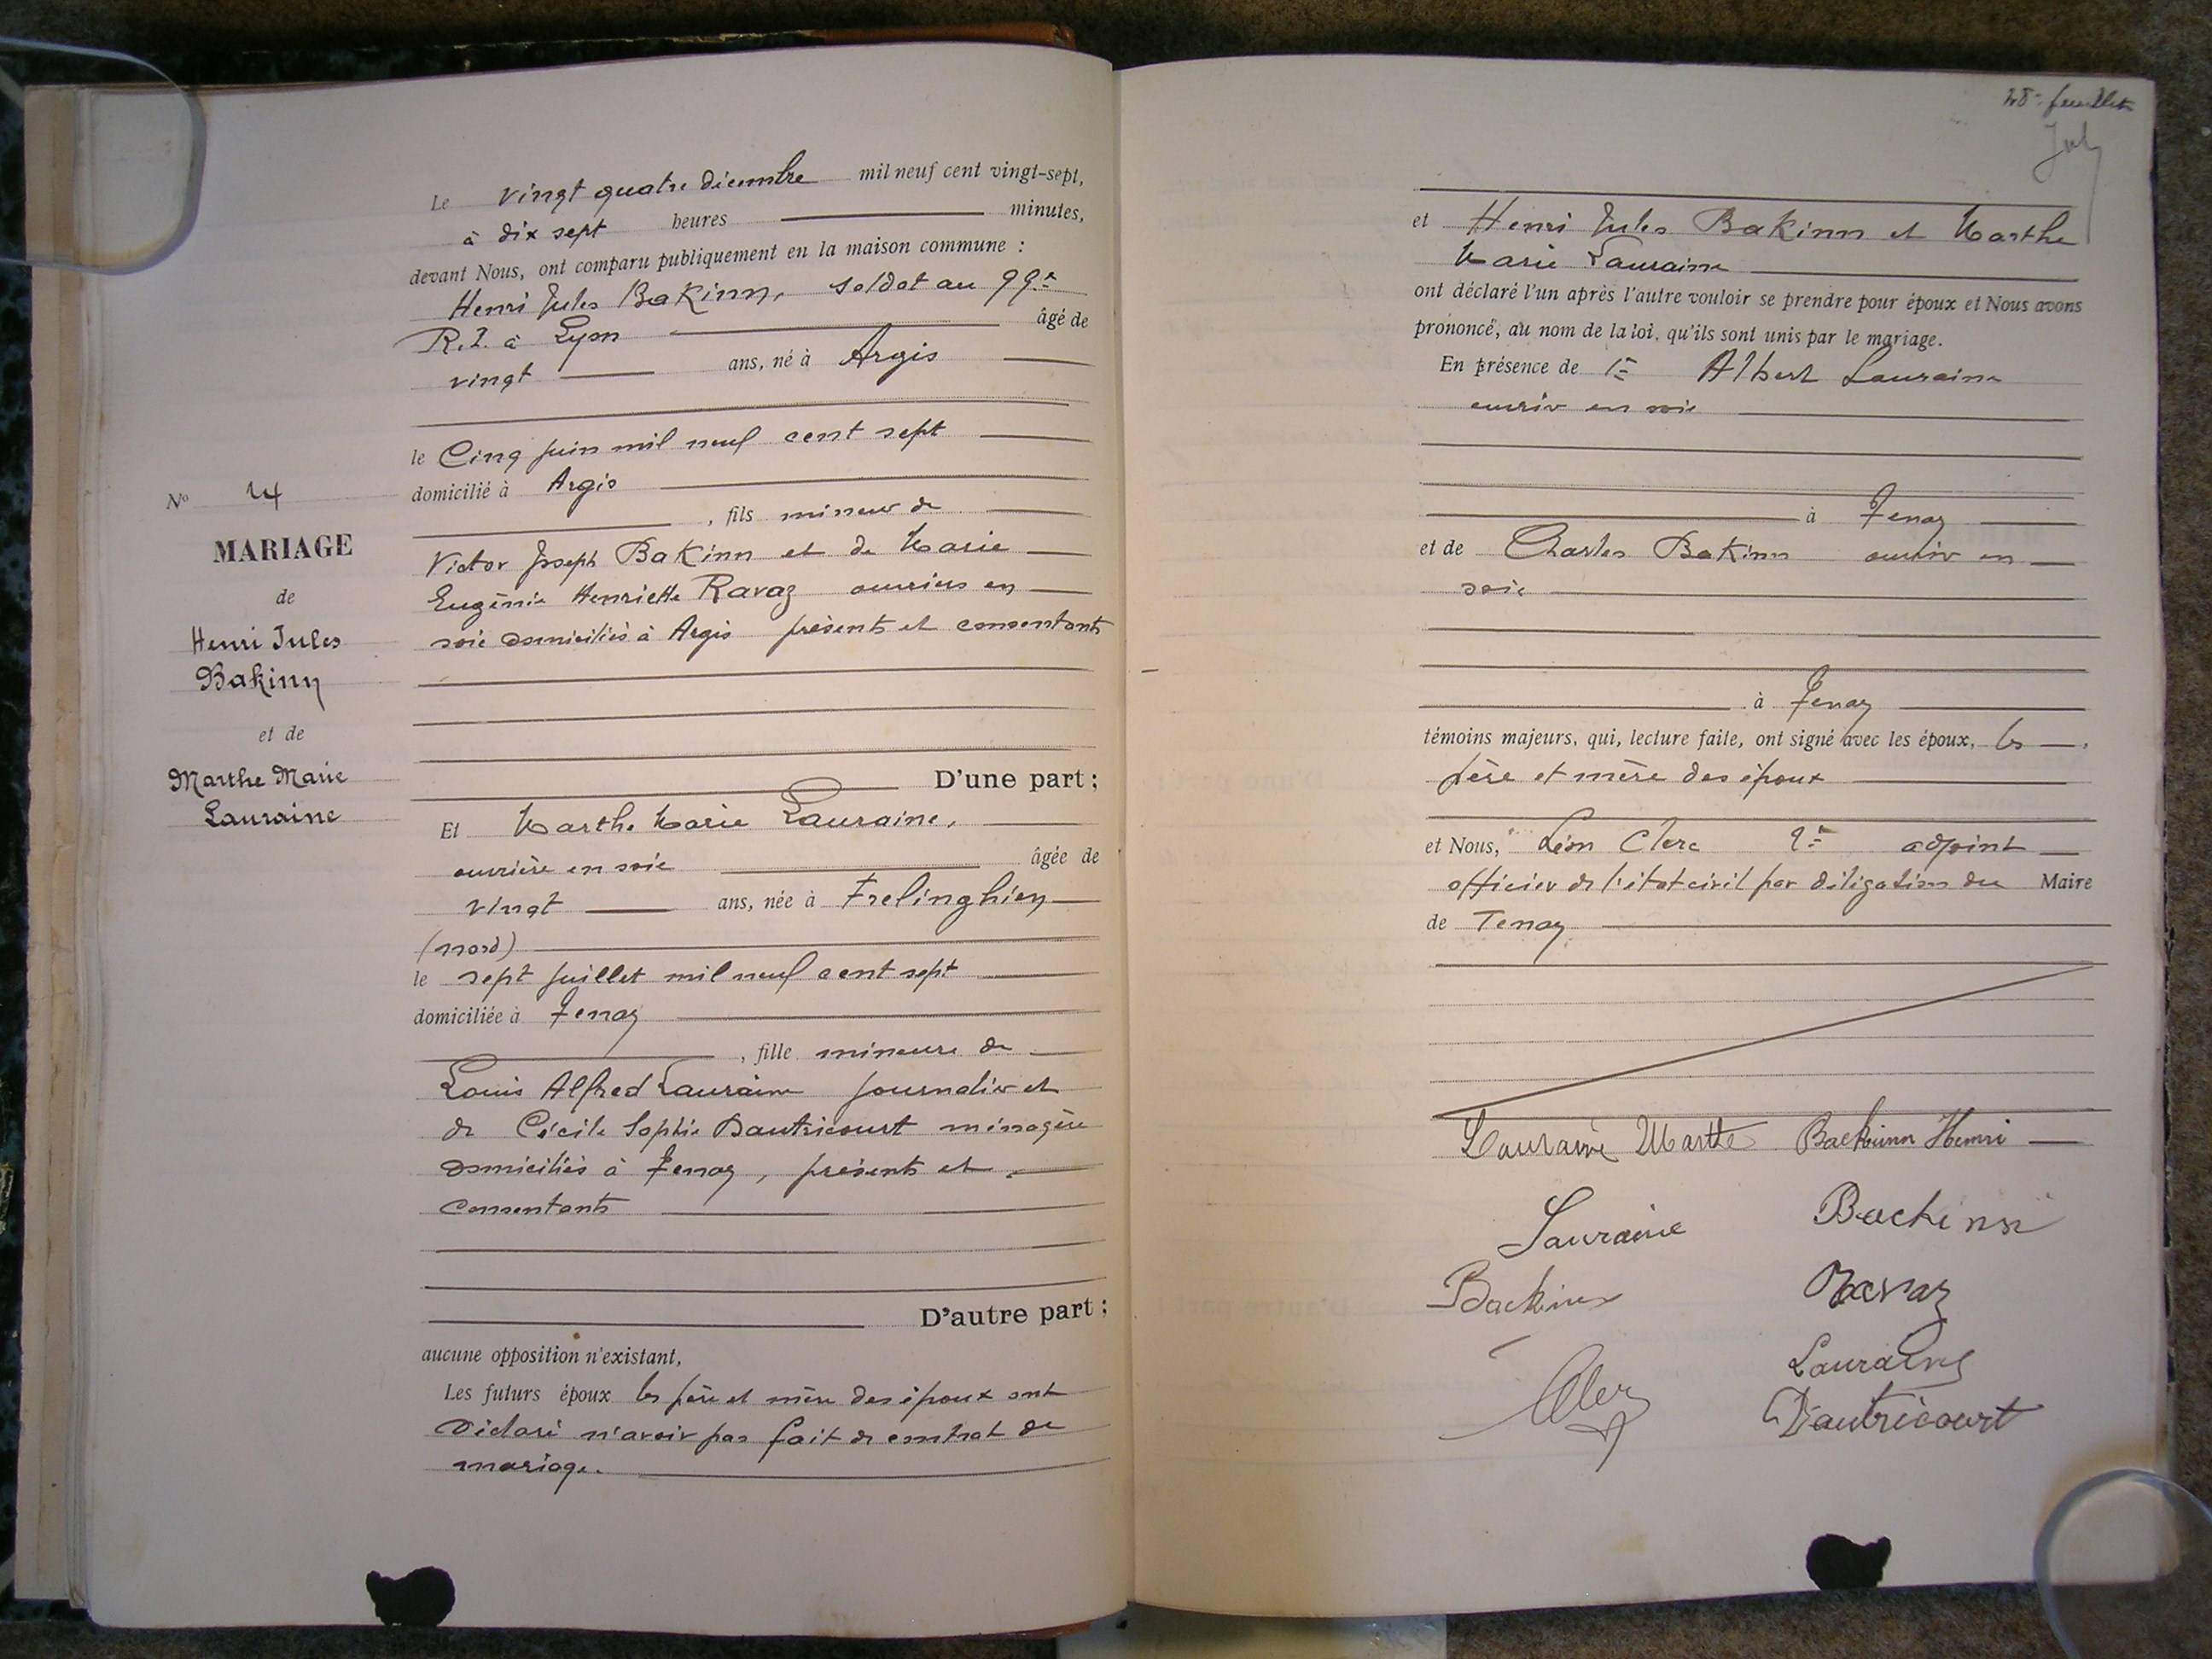 Le vingt quatre décembre mil neuf cent vingt-sept,
à dix sept heures minutes,
devant Nous, ont comparu publiquement en la maison commune :
Henri Jules Bakinn, soldat au 99e
R.I. à Lyon âgé de
vingt ans, né à Argis
le Cinq juin mil neuf cent sept
domicilié à Argis
, fils mineur de
Victor Joseph Bakinn et de Marie
Eugénie Henriette Ravaz ouvriers en
soie domiciliés à Argis présents et consentants
D'une part ;
No 24
MARIAGE
de
Henri Jules
Bakinn
et de
Marthe Marie
Lauraine
Et Marthe Marie Lauraine,
ouvrière en soie âgée de
vingt ans, née à Frelinghien
(nord)
le sept juillet mil neuf cent sept
domiciliée à Tenay
, fille mineure de
Louis Alfred Lauraine journalier et
de Cécile Sophie Dautricourt ménagère
domiciliés à Tenay, présents et
consentants
D'autre part ;
aucune opposition n'existant,
Les futurs époux les père et mère des époux ont
déclaré n'avoir pas fait de contrat de
mariage.
feuillet
et Henri Jules Bakinn et Marthe
Marie Lauraine
ont déclaré l'un après l'autre vouloir se prendre pour époux et Nous avons
prononcé, au nom de la loi, qu'ils sont unis par le mariage.
En présence de Albert Lauraine
ouvrier en soie
à Tenay
et de Charles Bakinn ouvrier en
soie
à Tenay
témoins majeurs, qui, lecture faite, ont signé avec les époux, les
père et mère des époux
et Nous, Léon Clerc adjoint
officier de l'état civil par délégation du Maire
de Tenay
Lauraine Marthe Backinn Henri
Lauraine Backinn
Backinn Ravaz
Lauraine
Clerc
Dautricourt